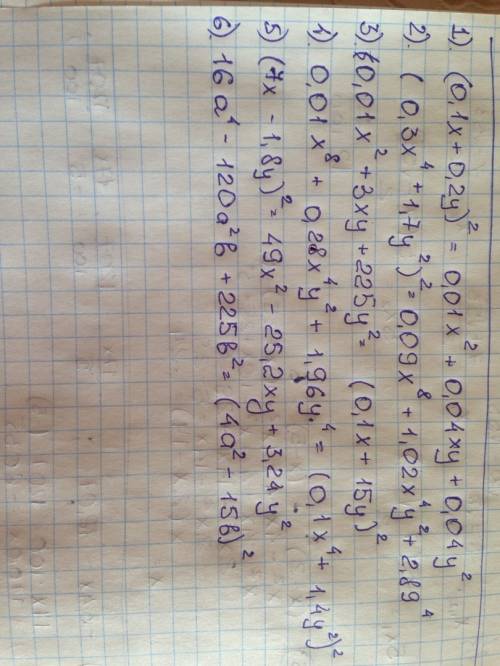 1). (0,1x+0,2y)² = 0,01x² + 0,04xy + 0,04y²
2). (0,3x⁴ + 1,7y²)² = 0,09x⁸ + 1,02x⁴y² + 2,89⁴
3) (0,01x² + 3xy + 225y² = (0,1x + 15y)²
4). 0,01x⁸ + 0,28x⁴y² + 1,96y⁴ = (0,1x⁴ + 1,4y²)²
5) (7x - 1,8y)² = 49x² - 25,2xy + 3,24y²
6). 16a⁴ - 120a²b + 225b² = (4a² - 15b)²